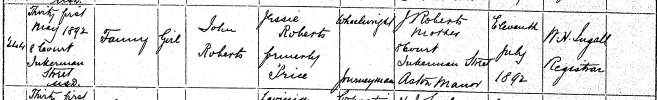 U.S.D.
Thirty first
May 1892
8 Court
Inkerman
Street
U.S.D.
Fanny
Girl
John
Roberts
Jessie
Roberts
formerly
Price
Wheelwright
Journeyman
J Roberts
Mother
8 Court
Inkerman Street
Aston Manor
Eleventh
July
1892
W. H. Ingall
Registrar
Thirty first